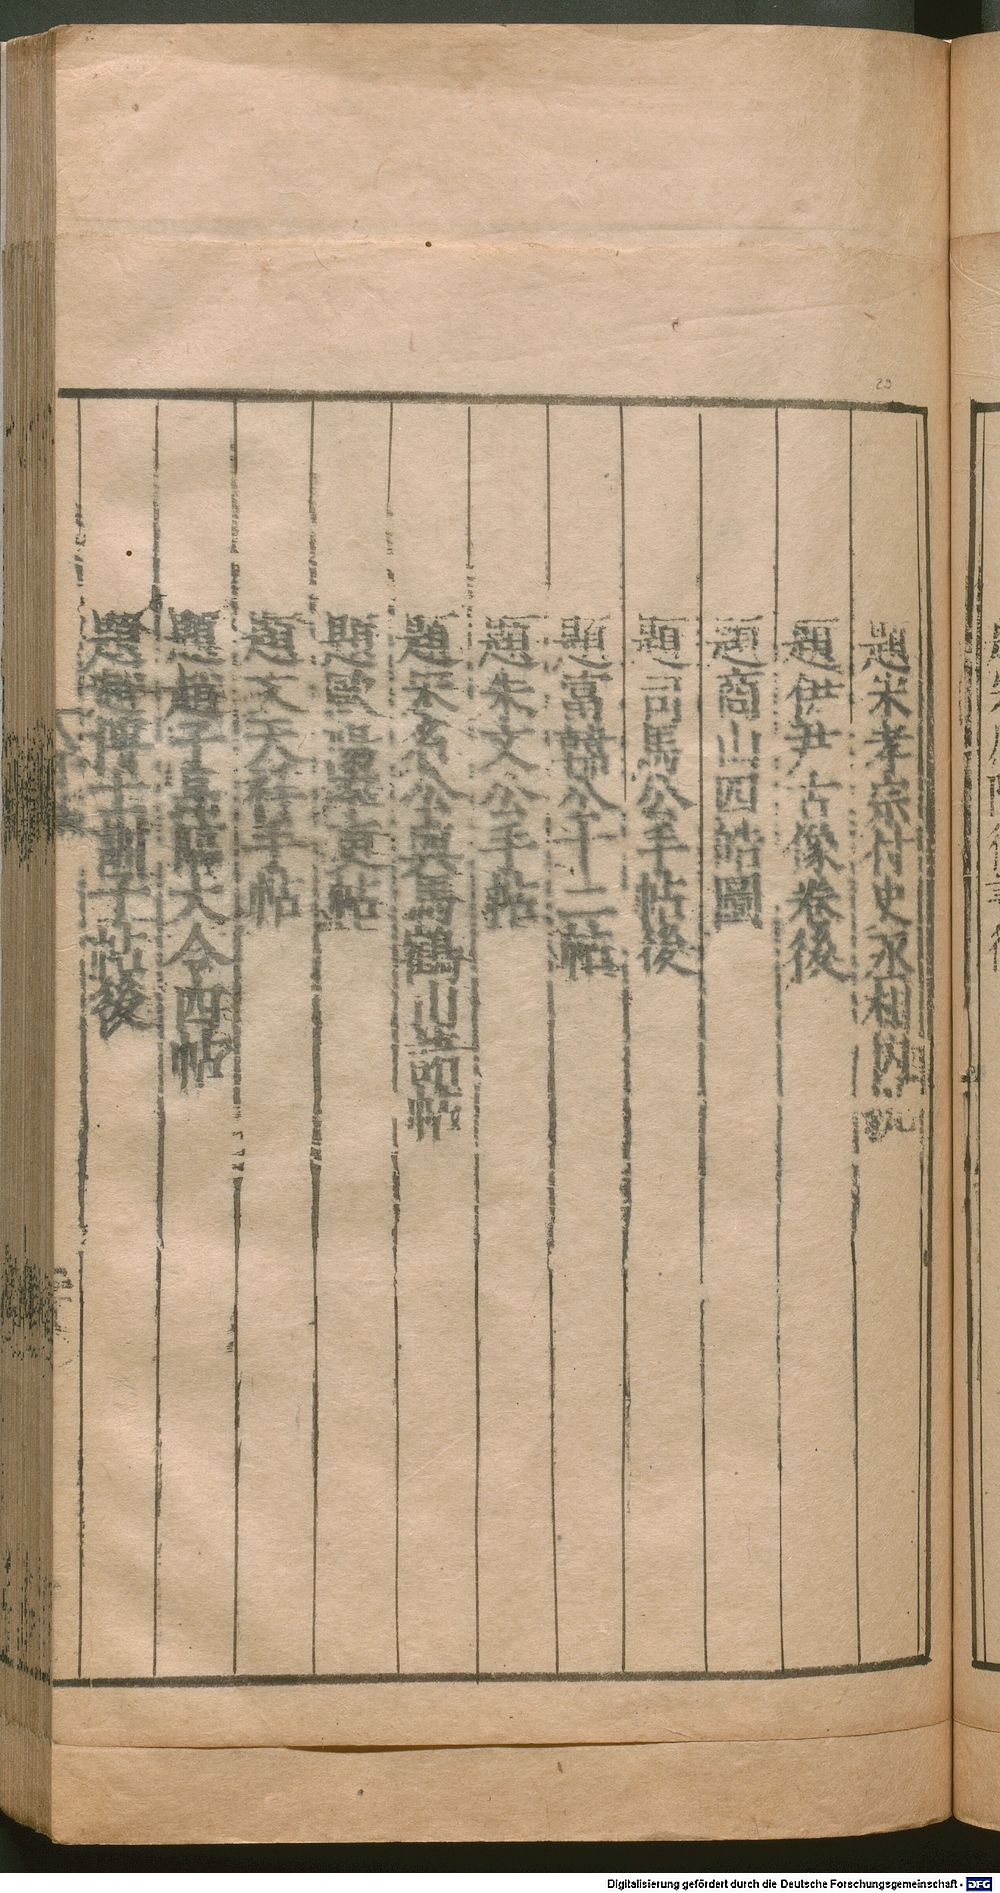 題宋孝宗付史丞相內
題伊尹古像卷後
題商山四皓圖
題司馬公手帖後
題富韓公十二帖
題朱文公手帖
題宋名公與馬鶴山諸帖
題歐率更帖
題文天祥手帖
題趙子昂臨大令四帖
題趙博士訓子帖後
29
Digitalisierung gefördert durch die Deutsche Forschungsgemeinschaft - DFG